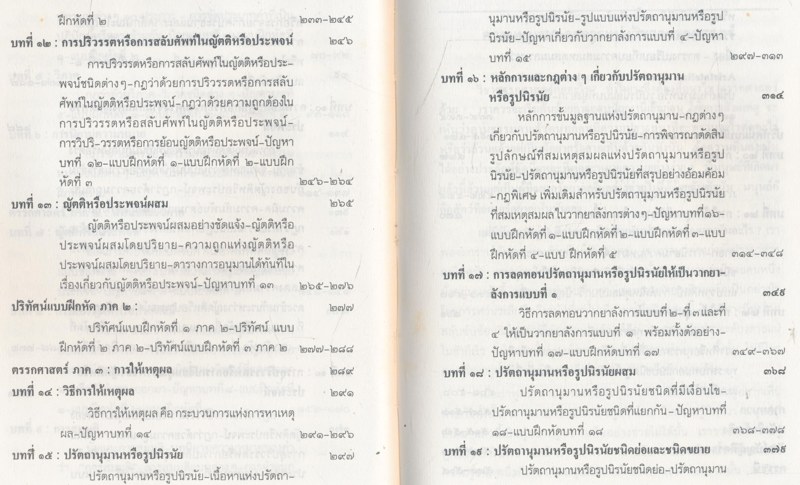 ฝึกหัดที่ ๒ ๒๓๓-๒๔๕
บทที่ ๑๒ : การปริวรรตหรือการสลับศัพท์ในญัตติหรือประพจน์ ๒๔๖
การปริวรรตหรือการสลับศัพท์ในญัตติหรือประ-
พจน์ชนิดต่างๆ-กฎว่าด้วยการปริวรรตหรือการสลับ
ศัพท์ในญัตติหรือประพจน์-กฎว่าด้วยความถูกต้องใน
การปริวรรตหรือสลับศัพท์ในญัตติหรือประพจน์-
การวิปริ-วรรตหรือการย้อนญัตติหรือประพจน์-ปัญหา
บทที่ ๑๒-แบบฝึกหัดที่ ๑-แบบฝึกหัดที่ ๒-แบบฝึก
หัดที่ ๓ ๒๔๖-๒๖๔
บทที่ ๑๓ : ญัตติหรือประพจน์ผสม ๒๖๕
ญัตติหรือประพจน์ผสมอย่างชัดแจ้ง-ญัตติหรือ
ประพจน์ผสมโดยปริยาย-ความถูกแห่งญัตติหรือ
ประพจน์ผสมโดยปริยาย-ตารางการอนุมานได้ทันทีใน
เรื่องเกี่ยวกับญัตติหรือประพจน์-ปัญหาบทที่ ๑๓ ๒๖๕-๒๗๖
ปริทัศน์แบบฝึกหัด ภาค ๒ : ๒๗๗
ปริทัศน์แบบฝึกหัดที่ ๑ ภาค ๒-ปริทัศน์ แบบ
ฝึกหัดที่ ๒ ภาค ๒-ปริทัศน์แบบฝึกหัดที่ ๓ ภาค ๒ ๒๗๗-๒๘๘
ตรรกศาสตร์ ภาค ๓ : การให้เหตุผล ๒๘๙
บทที่ ๑๔ : วิธีการให้เหตุผล ๒๙๑
วิธีการให้เหตุผล คือ กระบวนการแห่งการหาเหตุ
ผล-ปัญหาบทที่ ๑๔ ๒๙๑-๒๙๖
บทที่ ๑๕ : ปรัตถานุมานหรือรูปนิรนัย ๒๙๗
ปรัตถานุมานหรือรูปนิรนัย-เนื้อหาแห่งปรัตถา-
นุมานหรือรูปนิรนัย-รูปแบบแห่งปรัตถานุมานหรือรูป
นิรนัย-ปัญหาเกี่ยวกับวากยาลังการแบบที่ ๔-ปัญหา
บทที่ ๑๕ ๒๙๗-๓๑๓
บทที่ ๑๖ : หลักการและกฎต่าง ๆ เกี่ยวกับปรัตถานุมาน
หรือรูปนิรนัย ๓๑๔
หลักการชั้นมูลฐานแห่งปรัตถานุมาน-กฎต่างๆ
เกี่ยวกับปรัตถานุมานหรือรูปนิรนัย-การพิจารณาตัดสิน
รูปลักษณ์ที่สมเหตุสมผลแห่งปรัตถานุมานหรือรูป
นิรนัย-ปรัตถานุมานหรือรูปนิรนัยที่สรุปอย่างอ้อมค้อม
-กฎพิเศษ เพิ่มเติมสำหรับปรัตถานุมานหรือรูปนิรนัย
ที่สมเหตุสมผลในวากยาลังการต่างๆ-ปัญหาบทที่๑๖-
แบบฝึกหัดที่ ๑-แบบฝึกหัดที่ ๒-แบบฝึกหัดที่ ๓-แบบ
ฝึกหัดที่ ๔-แบบ ฝึกหัดที่ ๕ ๓๑๔-๓๔๘
บทที่ ๑๗ : การลดทอนปรัตถานุมานหรือรูปนิรนัยให้เป็นวากยา-
ลังการแบบที่ ๑ ๓๔๙
วิธีการลดทอนวากยาลังการแบบที่ ๒-ที่ ๓ และที่
๔ ให้เป็นวากยาลังการแบบที่ ๑ พร้อมทั้งตัวอย่าง-
ปัญหาบทที่ ๑๗-แบบฝึกหัดบทที่ ๑๗ ๓๔๙-๓๖๗
บทที่ ๑๘ : ปรัตถานุมานหรือรูปนิรนัยผสม ๓๖๘
ปรัตถานุมานหรือรูปนิรนัยชนิดที่มีเงื่อนไข-
ปรัตถานุมานหรือรูปนิรนัยชนิดที่แยกกัน-ปัญหาบทที่
๑๘-แบบฝึกหัดบทที่ ๑๘ ๓๖๘-๓๗๘
บทที่ ๑๙ : ปรัตถานุมานหรือรูปนิรนัยชนิดย่อและชนิดขยาย ๓๗๙
ปรัตถานุมานหรือรูปนิรนัยชนิดย่อ-ปรัตถานุมาน